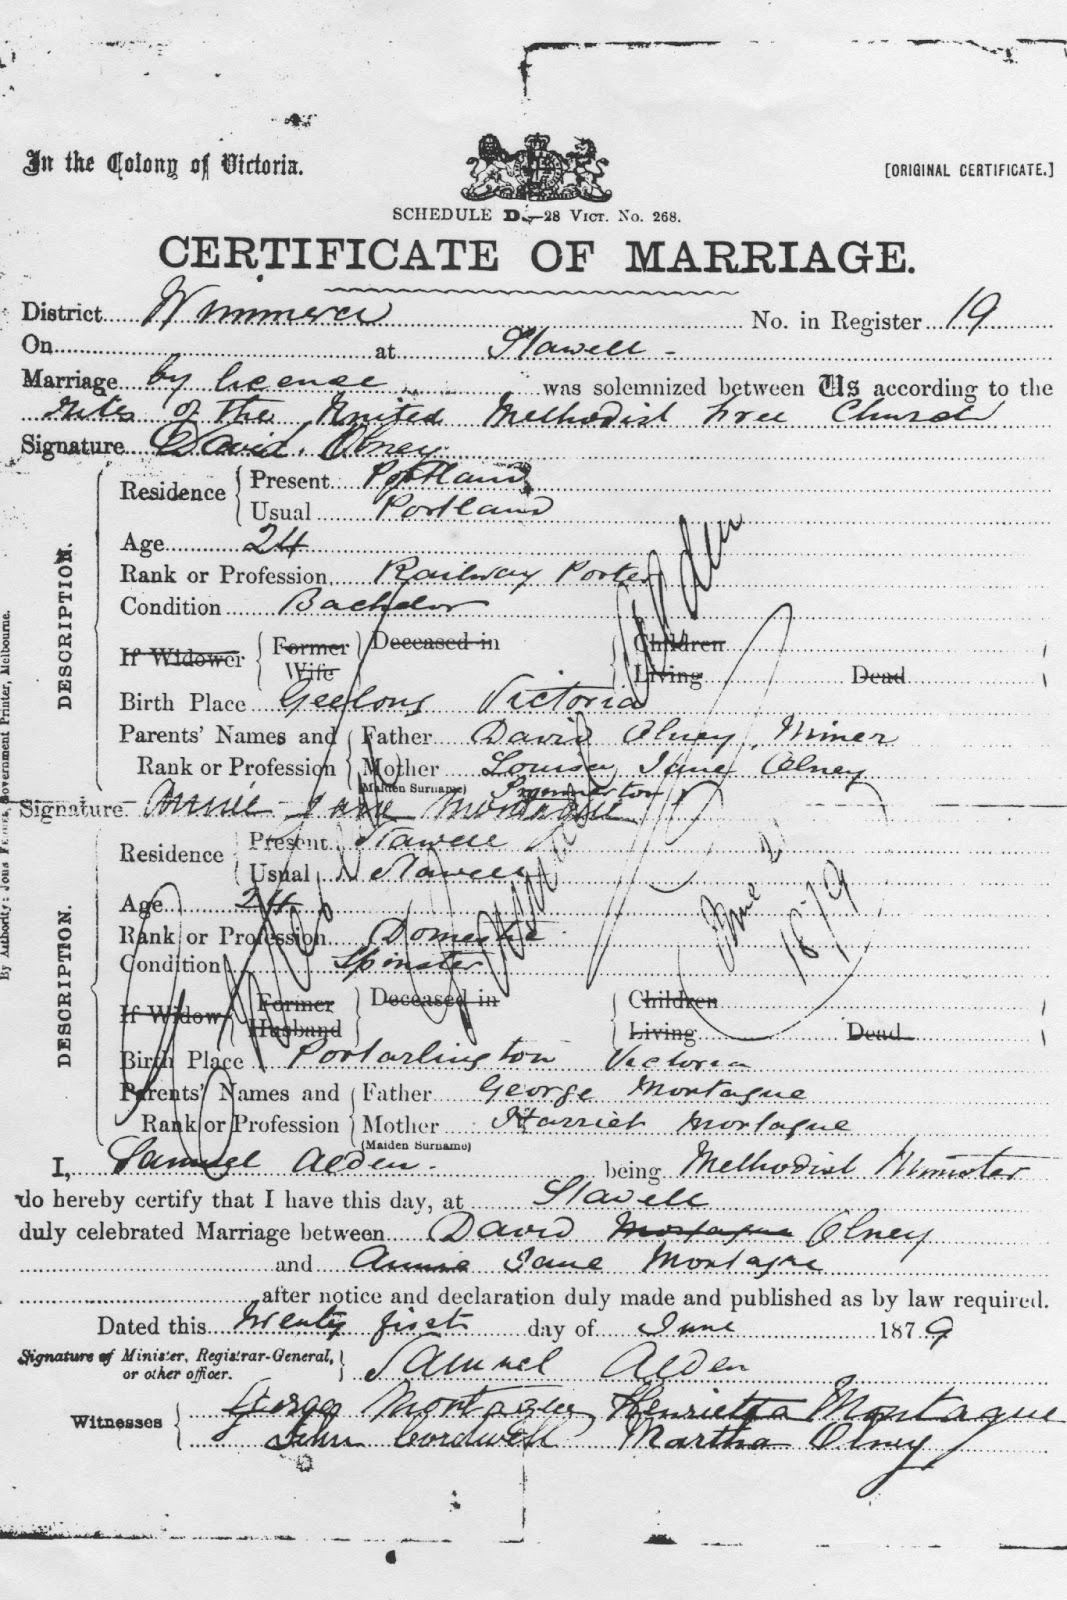 In the Colony of Victoria.
[ORIGINAL CERTIFICATE.]
SCHEDULE D.—28 VICT. No. 268.
CERTIFICATE OF MARRIAGE.
District Wimmera No. in Register 19
On at Stawell -
Marriage by license was solemnized between Us according to the
rites of the United Methodist Free Church
Signature David Olney
DESCRIPTION.
Residence Present Portland
Usual Portland
Age 24
Rank or Profession Railway Porter
Condition Bachelor
If Widower Former Wife Deceased in Children Living Dead
Birth Place Geelong Victoria
Parents' Names and Rank or Profession
Father David Olney, Miner
Mother Louisa Jane Olney
(Maiden Surname)
Signature Annie Jane Montague
DESCRIPTION.
Residence Present Stawell
Usual Stawell
Age 24
Rank or Profession Domestic
Condition Spinster
If Widow Former Husband Deceased in Children Living Dead
Birth Place Portarlington Victoria
Parents' Names and Rank or Profession
Father George Montague
Mother Harriet Montague
(Maiden Surname)
June 21
1879
I, Samuel Alden. being Methodist Minister
do hereby certify that I have this day, at Stawell
duly celebrated Marriage between David Montague Olney
and Annie Jane Montague
after notice and declaration duly made and published as by law required.
Dated this Twenty first day of June 1879
Signature of Minister, Registrar-General, or other officer. Samuel Alden
Witnesses George Montague Henrietta Montague
John Cordwell Martha Olney
Government Printer, Melbourne.